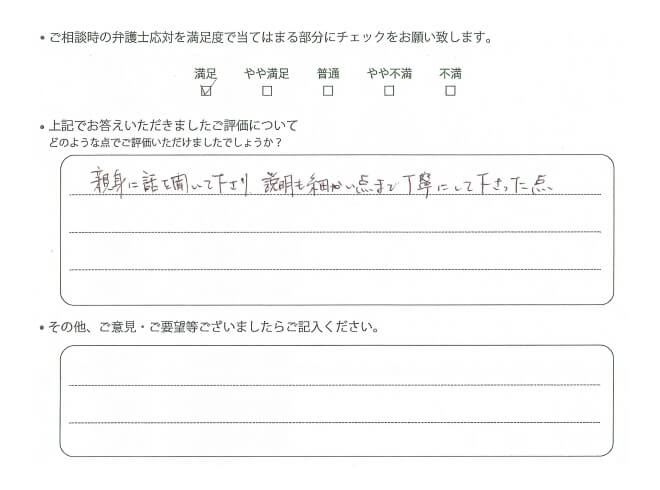 • ご相談時の弁護士応対を満足度で当てはまる部分にチェックをお願い致します。
満足 やや満足 普通 やや不満 不満
• 上記でお答えいただきましたご評価について
どのような点でご評価いただけましたでしょうか？
親身に話を聞いて下さり 説明も細かい点まで丁寧にして下さった点、
• その他、ご意見・ご要望等ございましたらご記入ください。